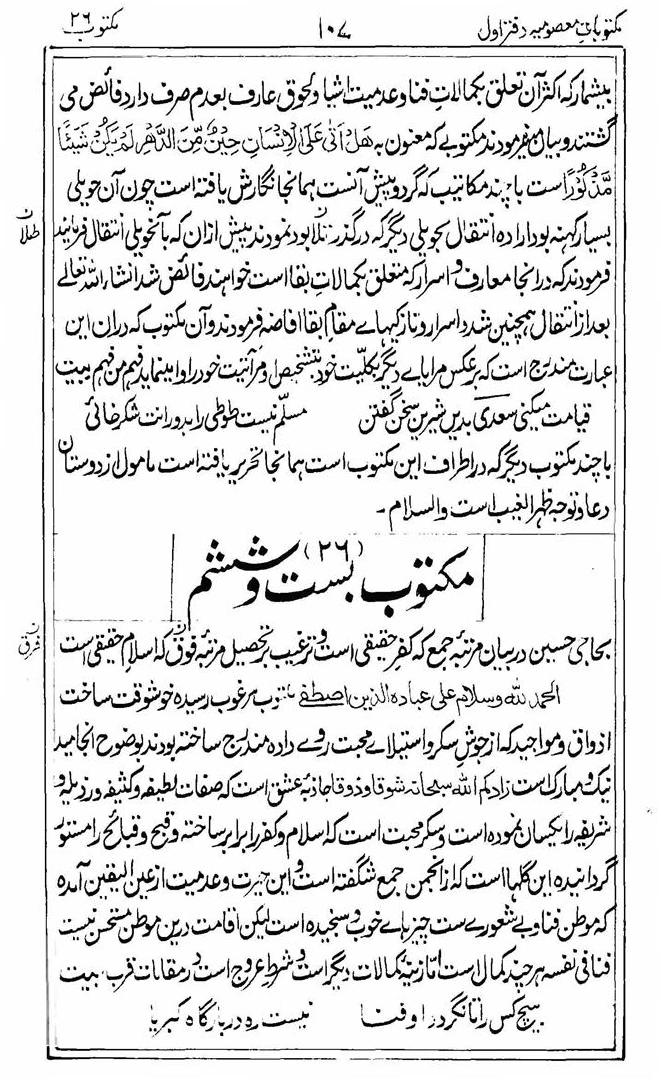 مکتوبات معصومیه دفتر اول ۱۰۷ مکتوب ۲۶
بیشمار که اکثر آن تعلق بکمالاتِ فنا و عدمیت اشیا و لحوق عارف بعدم صرف دارد فائض می
گشتند و بیان میفرمودند مکتوبے که معنون به هَلْ اَتٰی عَلَی الْاِنْسَانِ حِیْنٌ مِّنَ الدَّهْرِ لَمْ یَکُنْ شَیْئًا
مَّذْکُوْرًا است با چند مکاتیب که گرد و پیش آنست همانجا نگارش یافته است چون آن حویلی
بسیار کهنه بود اراده انتقال بحویلی دیگر که در گذر تلا بود نمودند پیش ازان که بآنحویلی انتقال فرمایند
طلا ن
فرمودند که در انجا معارف و اسرار که متعلق بکمالاتِ بقا است خواهند فائض شد انشاء الله تعالے
بعد از انتقال همچنین شد و اسرار و نازکیهاے مقامِ بقا افاضه فرمودند و آن مکتوب که دران این
عبارت مندرج است که بر عکس مرایاے دیگر بکلّیت خود بتشخص و مرآتیت خود را وا مینماید فهم من فهم بیت
قیامت میکنی سعدی بدیں شیرین سخن گفتن مسلّم نیست طوطی را بدورانت شکر خائی
با چند مکتوب دیگر که در اطراف این مکتوب است همانجا تحریر یافته است مامول از دوستان
دعا و توجه ظهر الغیب است والسلام ۔
مکتوب (۲۶) بست و ششم
بحاجی حسین در بیان مرتبۂ جمع که کفر حقیقی است و ترغیب بر تحصیل مرتبۂ فوق که اسلامِ حقیقی است
فرق ن
الحمد لله وسلام علی عباده الذین اصطفے مرغوب رسیده خوشوقت ساخت
اذواق و مواجید که از جوشِ سکر و استیلاے محبت روے داده مندرج ساخته بودند بوضوح انجامید
نیک و مبارک است زادکم الله سبحانه شوقا و ذوقا جاذبۂ عشق است که صفات لطیفه و کثیفه و رذیله و
شریفه را یکسان نموده است و سکر محبت است که اسلام و کفر را برابر ساخته و قبح و قبائح را مستور
گردانیده این گلها است که از انجمنِ جمع شگفته است و این حیرت و عدمیت از عین الیقین آمده
که موطن فنا و بے شعوریست چیزهاے خوب و سنجیده است لیکن اقامت درین موطن مستحسن نیست
فنا فی نفسه هر چند کمال است امّا زینۂ کمالات دیگر است و شرطِ عروج است در مقامات قرب بیت
هیچ کس را تا نگردد او فنا نیست ره در بارگاه کبریا